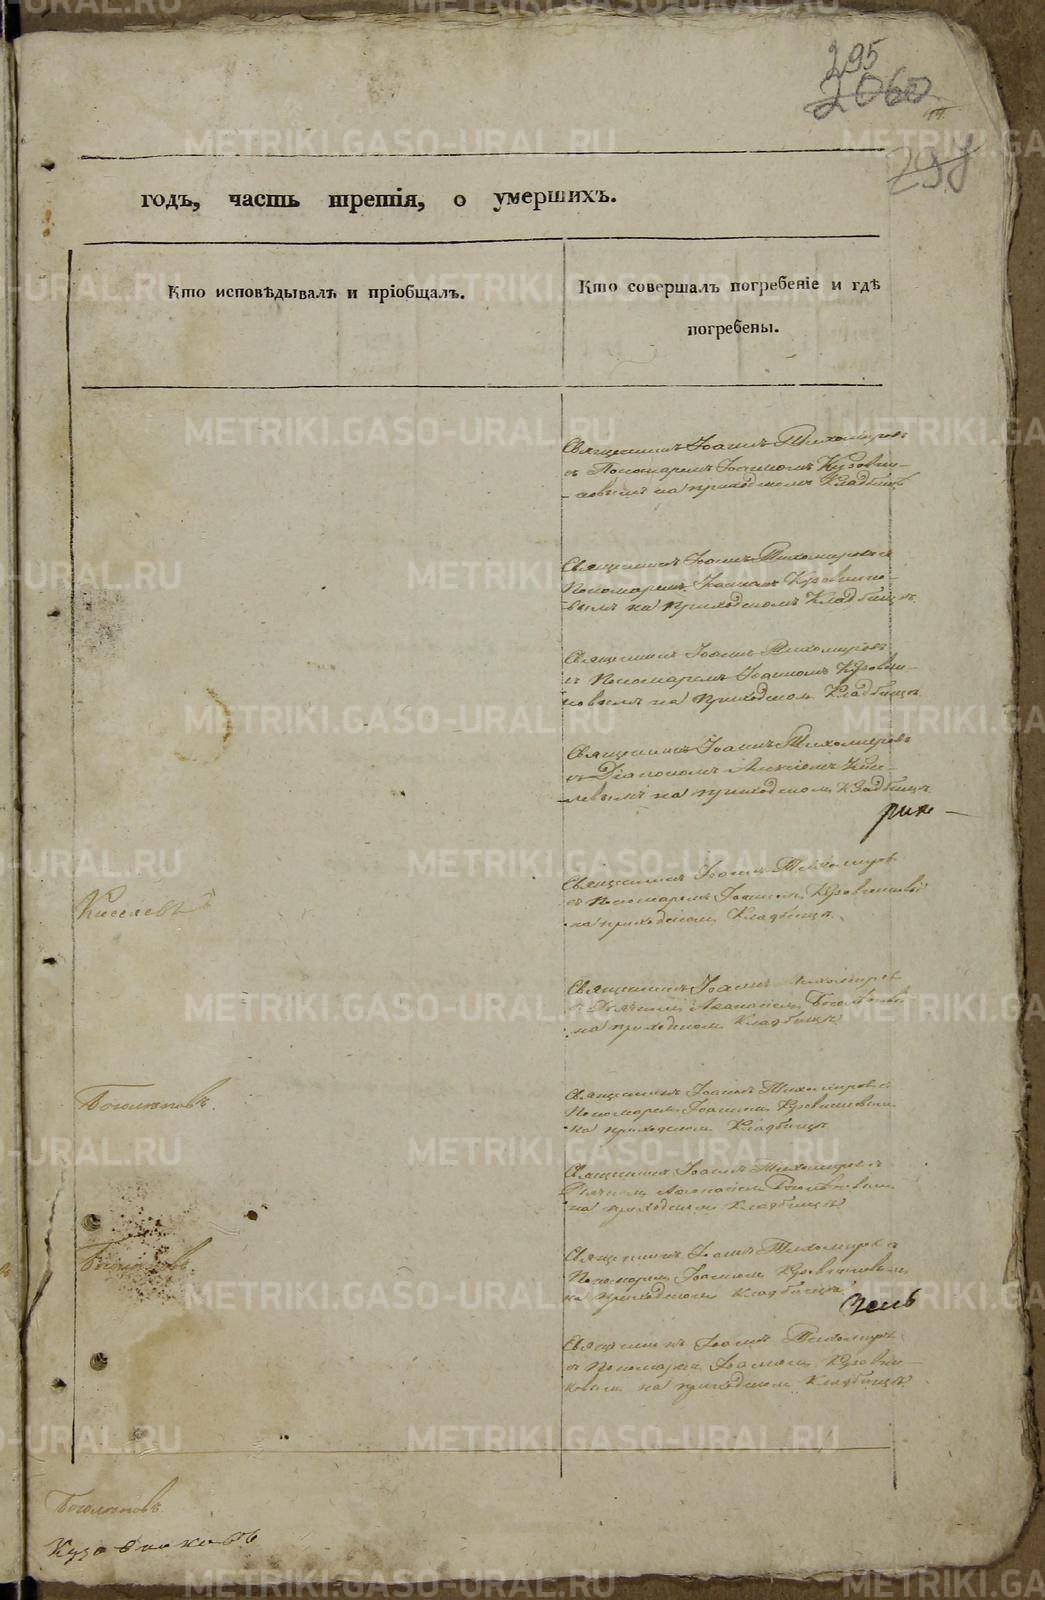 295
2060
298
годъ, часть третія, о умершихъ.
Кто исповѣдывалъ и пріобщалъ.
Кто совершалъ погребеніе и гдѣ
погребены.
Священникъ Іоаннъ Тихомировъ
съ Пономаремъ Іоанномъ Кузовни-
ковымъ на приходскомъ Кладбищѣ
Священникъ Іоаннъ Тихомировъ с
Пономаремъ Іоанномъ Кузовнико-
вымъ на приходскомъ Кладбищѣ
Священникъ Іоаннъ Тихомировъ
съ Пономаремъ Іоанномъ Кузовни-
ковымъ на приходском Кладбищѣ
Священникъ Іоаннъ Тихомировъ
съ Діакономъ Алексіемъ Кисе-
левымъ на приходском Кладбищѣ
Священникъ Іоаннъ Тихомиров
съ Пономаремъ Іоанном Кузовниковы
на приходском Кладбищѣ
Киселевъ
Священникъ Іоаннъ Тихомиров
на приходском Кладбищѣ
Священникъ Іоаннъ Тихомировъ с
Пономарем Іоанном Кузовниковым
на приходском Кладбищѣ
Священник Іоаннъ Тихомиров с
на приходском Кладбищѣ
Священникъ Іоаннъ Тихомиров с
Пономарем Іоанном Кузовниковым
на приходском Кладбищѣ
Священникъ Іоаннъ Тихомировъ
съ Пономарем Іоанном Кузовни-
ковым на приходском Кладбищѣ
Кузовниковъ
METRIKI.GASO-URAL.RU